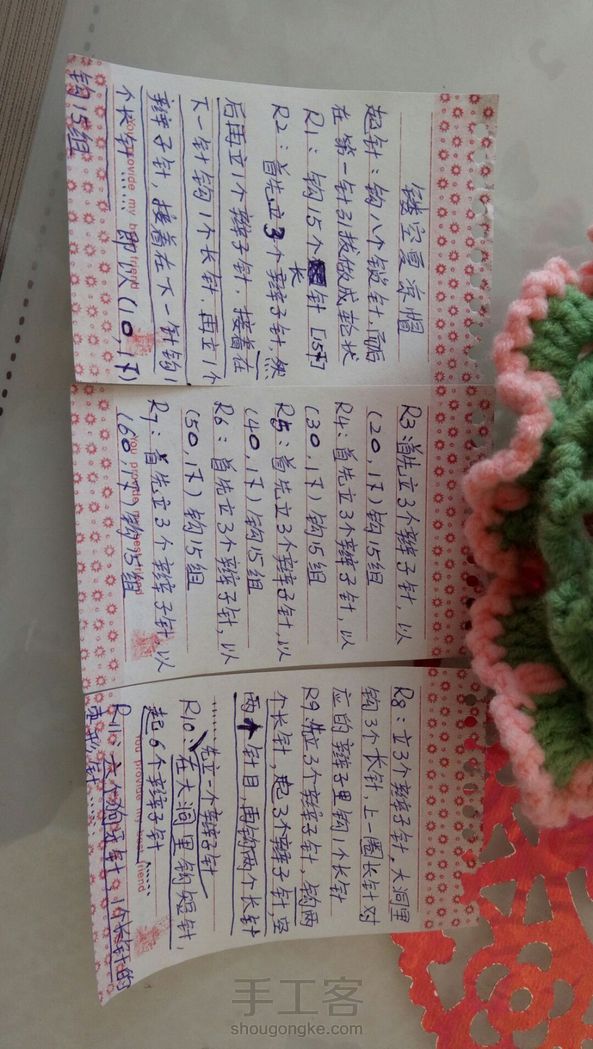 镂空夏凉帽
起针：钩八个锁针.而后
在第一针引拔做成轮状
R1：钩15个长针 [15T]
R2：首先立3个辫子针.然
后再立1个辫子针 接着在
下一针钩1个长针.再立1个
辫子针,接着在下一针钩1
个长针……即以(10,1T)
钩15组
You provide my best friend
R3:首先立3个辫子针,以
(20,1T)钩15组
R4：首先立3个辫子针,以
(30.1T)钩15组
R5：首先立3个辫子针,以
(40,1T)钩15组
R6：首先立3个辫子针,以
(50,1T)钩15组
R7：首先立3个辫子针,以
(60.1T)钩15组
You provide my best friend
R8：立3个辫子针,大洞里
钩3个长针.上一圈长针对
应的辫子里钩1个长针
R9:先立3个辫子针,钩两
个长针,起3个辫子针,空
两个针目,再钩两个长针
先立一个辫子针
R10 在大洞里钩短针
起6个辫子针……
You provide my best friend
R11：六个短针,1个长针的
手工客
shougongke.com